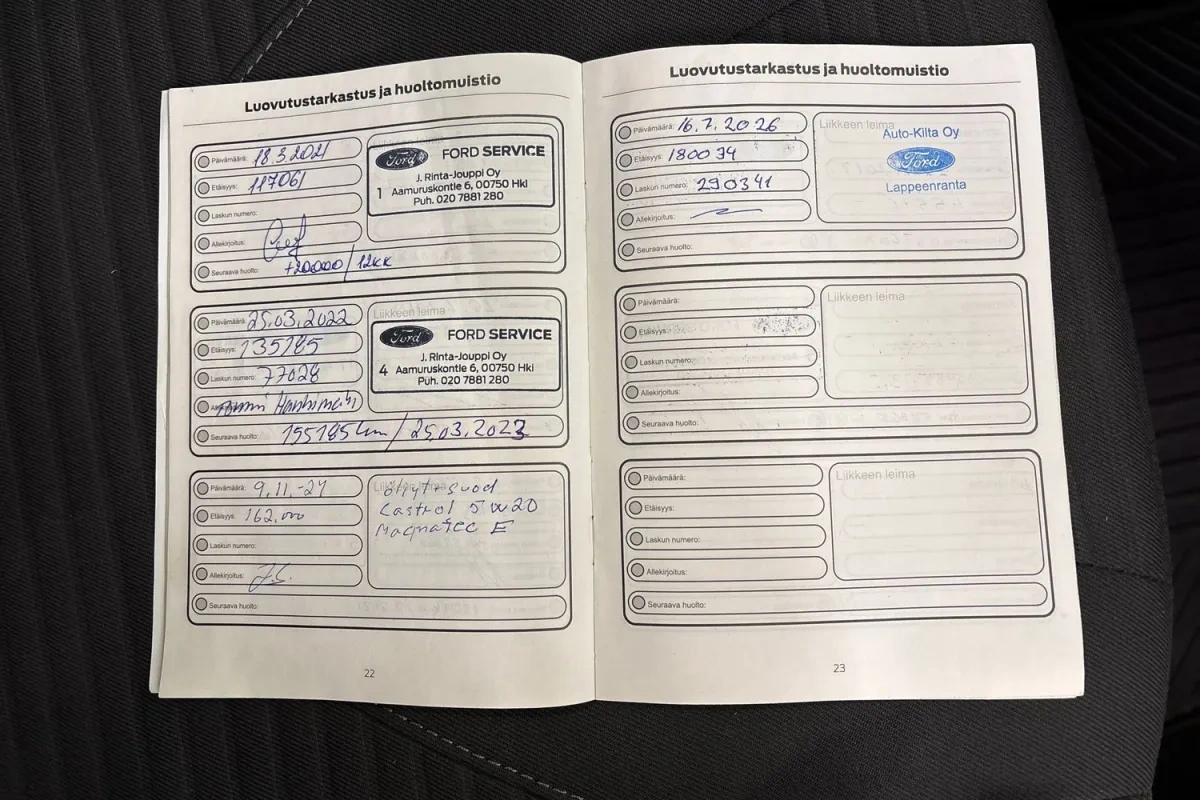 Luovutustarkastus ja huoltomuistio
Päivämäärä: 18.3.2021
Etäisyys: 117061
Laskun numero:
Allekirjoitus:
Seuraava huolto: +20000/12kk
Ford FORD SERVICE
J. Rinta-Jouppi Oy
1 Aamuruskontie 6, 00750 Hki
Puh. 020 7881 280
Päivämäärä: 25.03.2022
Etäisyys: 135185
Laskun numero: 77028
Seuraava huolto: 155185km/25.03.2023
Liikkeen leima
Ford FORD SERVICE
J. Rinta-Jouppi Oy
4 Aamuruskontie 6, 00750 Hki
Puh. 020 7881 280
Päivämäärä: 9.11.-24
Etäisyys: 162,000
Laskun numero:
Allekirjoitus: JS.
Seuraava huolto:
Liikkeen leima
Castrol 5W20
Magnatec E
22
Luovutustarkastus ja huoltomuistio
Päivämäärä: 16.7.2026
Etäisyys: 180034
Laskun numero: 290341
Allekirjoitus:
Seuraava huolto:
Liikkeen leima
Auto-Kilta Oy
Ford
Lappeenranta
Päivämäärä:
Etäisyys:
Laskun numero:
Allekirjoitus:
Seuraava huolto:
Liikkeen leima
Päivämäärä:
Etäisyys:
Laskun numero:
Allekirjoitus:
Seuraava huolto:
Liikkeen leima
23